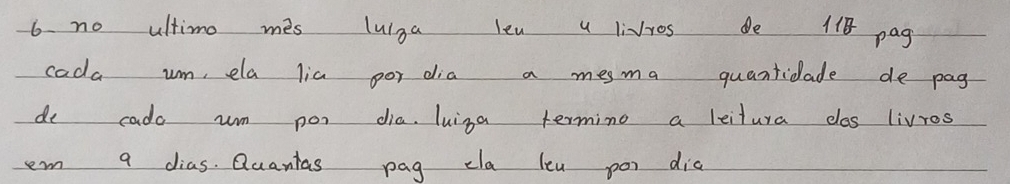 6- no ultimo mês luiza leu 4 livros de 117 pag
cada um. ela lia por dia a mesma quantidade de pag
de cada um por dia. luiza termino a leitura dos livros
em 9 dias. Quantas pag ela leu por dia